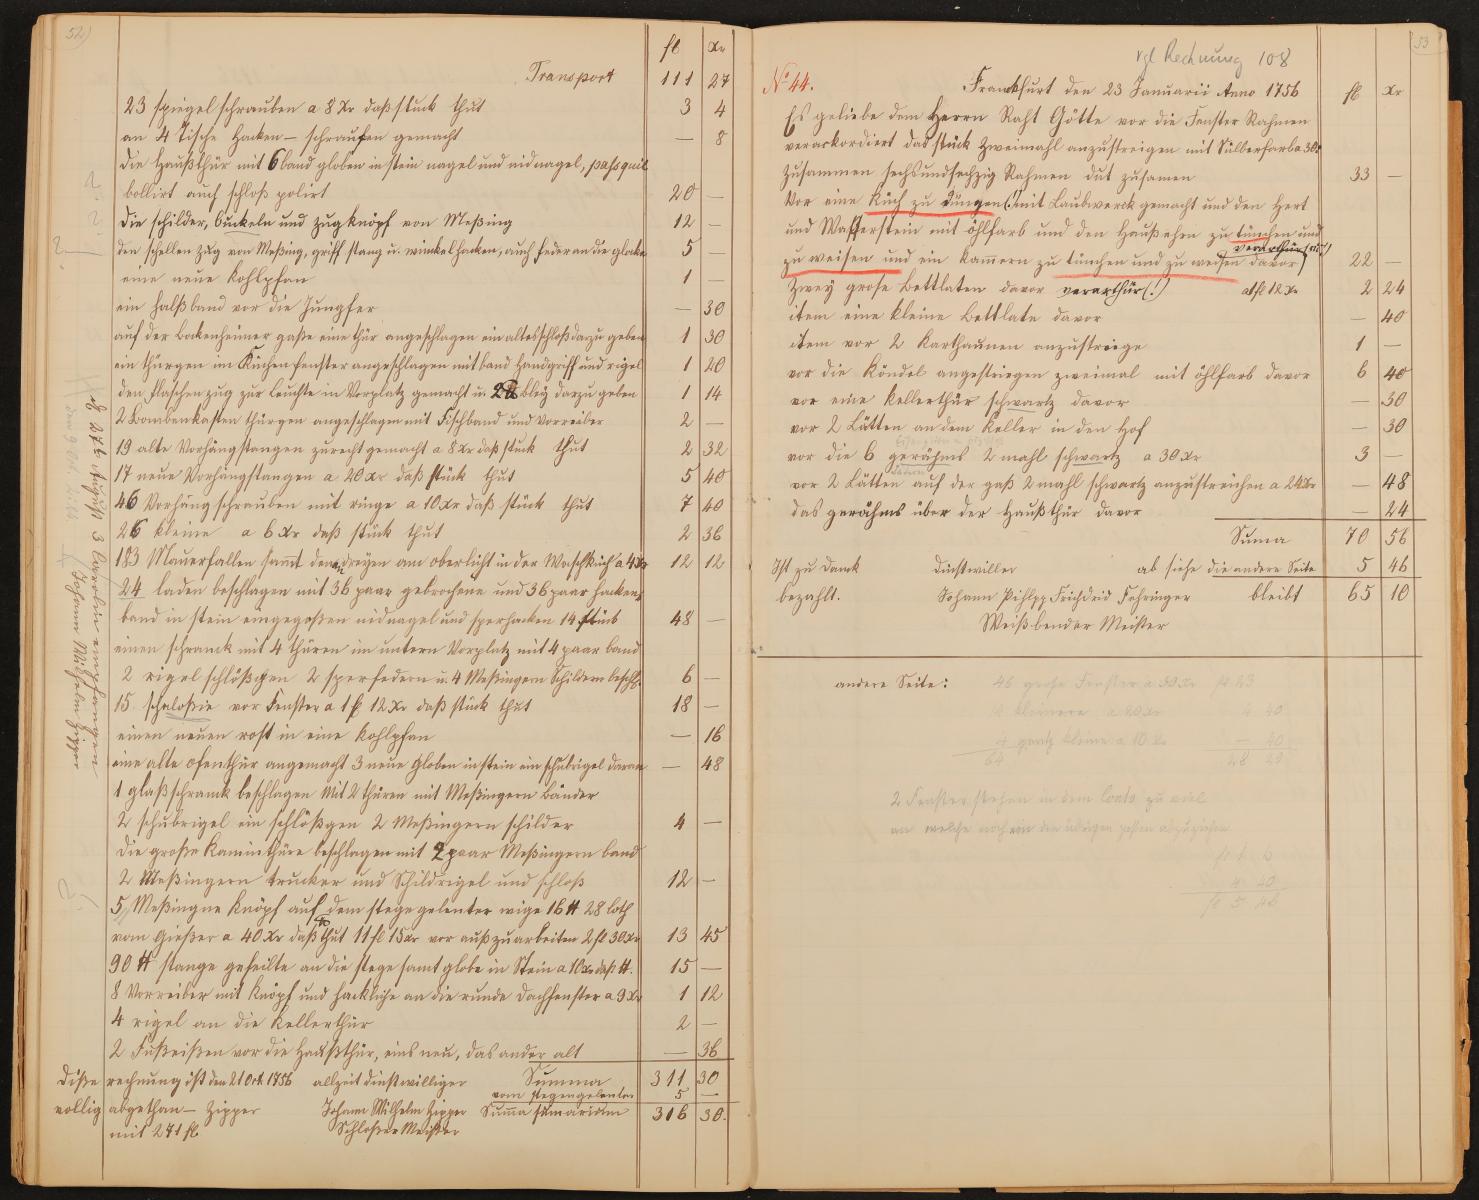 52)
fl Xr
Transport 111 27
23 spiegel schrauben a 8 Xr daß stuck thut 3 4
an 4 Tische Hacken — schraufen gemacht — 8
die Haußthür mit 6 band globen in stein nagel und nidnagel, passquil
bollirt auch schloß polirt 20 —
die schilder, buckeln und zugknöpf von Meßing 12 —
den schellen zug von Meßing, griff stang u. winkelhacken, auch feder an die glocke 5 —
eine neue Kohlpfan 1 —
ein halßband vor die Jungfer — 30
auf der Bockenheimer gaße eine thür angeschlagen ein altes schloß darzu geben 1 30
ein thürgen im Küchenfenster angeschlagen mit band Handgriff und rigel 1 20
den flaschenzug zur leuchte in Vorplatz gemacht u. 2 ℔ bley darzu geben 1 14
2 Bombenkasten thürgen angeschlagen mit Fischband und Vorreiber 2 —
19 alte Vorhängstangen zurecht gemacht a 8 Xr daß stuck thut 2 32
17 neue Vorhängstangen a 20 Xr daß stück thut 5 40
46 Vorhäng schrauben mit ringe a 10 Xr daß stück thut 7 40
26 kleine a 6 Xr daß stück thut 2 36
183 Mauerfallen samt denen dreyen am oberlicht in der Waschküch a 4 Xr 12 12
24 laden beschlagen mit 36 paar gebrochene und 36 paar hacken,
band in stein eingegoßen nidnagel und sperhacken 14 stück 48 —
einen schranck mit 4 thüren im untern Vorplatz mit 4 paar band
2 rigel schlößgen 2 sperfedern u. 4 Meßingern Schildern beschl. 6 —
15 schaloßie vor Fenster a 1 fl 12 Xr daß stück thut 18 —
einen neuen rost in eine Kohlpfan — 16
eine alte ofenthür angemacht 3 neue globen in stein ein schubrigel daran — 48
1 glaßschranck beschlagen mit 2 thüren mit Meßingern Bänder
2 schubrigel ein schlößgen 2 Meßingern schilder 4 —
die große Kaminthüre beschlagen mit 2 paar Meßingern band
2 Meßingern trucker und Schildrigel und schloß 12 —
5 Meßingne Knöpf auf dem stege gelenter wige 16 ℔ 28 loth
vom gießer a 40 Xr daß ℔ thut 11 fl 15 Xr vor auß zu arbeiten 2 fl 30 Xr 13 45
90 ℔ stange gefeilte an die stege samt globe in Stein a 10 Xr daß ℔. 15 —
8 Vorreiber mit Knöpf und hackliche an die runde Dachfenster a 9 Xr 1 12
4 rigel an die Kellerthür 2 —
2 Fußeißen vor die Haußthür, eins neu, das ander alt — 36
Diße rechnung ist den 21 Oct. 1756 allzeit dienstwilliger Summa 311 30
vom stegengelenter 5 —
vollig abgethan — Zipper Johann Wilhelm Zipper Summa sumarium 316 30.
mit 271 fl Schloßer Meister
Johann Wilhelm Zipper
53
vgl Rechnung 108
No 44. Frankfurt den 23 Januarii Anno 1756 fl Xr
Es geliebe dem Herrn Raht Götte vor die Fenster Rahmen
verackordiert das stück zweimahl anzustreigen mit Süllberfarb a 30 Xr
zusammen sechsundsechzig Rahmen dut zusamen 33 —
Vor eine Küch zu düngen (!) mit Laubwerck gemacht und den Hert
und Wasserstein mit öhlfarb und den Haußehen zu tünchen und
verarthür (sic!)
zu weisen und ein Kammern zu tünchen und zu weisen davor 22 —
Zwey grose Bettlaten davor verarthür (!) a 1 fl 12 Xr 2 24
item eine kleine Bettlate davor — 40
item vor 2 Karthaunen anzustreige 1 —
vor die Köndel angestriegen zweimal mit öhlfarb davor 6 40
vor eine Kellerthür schwartz davor — 30
vor 2 Lätten an dem Keller in den Hof — 30
vor die 6 gerähms 2 mahl schwartz a 30 Xr 3 —
vor 2 Lätten auf der gaß 2 mahl schwartz anzustreichen a 24 Xr — 48
das gerähms über der Haußthür davor — 24
Suma 70 56
Ist zu Danck dinstwiller ab siehe die andere Seite 5 46
bezahlt. Johann Pihlpp Frichdrid Föhringer bleibt 65 10
Weißbender Meister
andere Seite: 46 grose Fenster a 30 Xr fl 23
14 kleinere a 20 Xr 4 40
4 gantz kleine a 10 Xr — 40
64 28 20
2 Fenster stehen in dem Conto zu viel
fl 1 6
4 40
fl 5 46